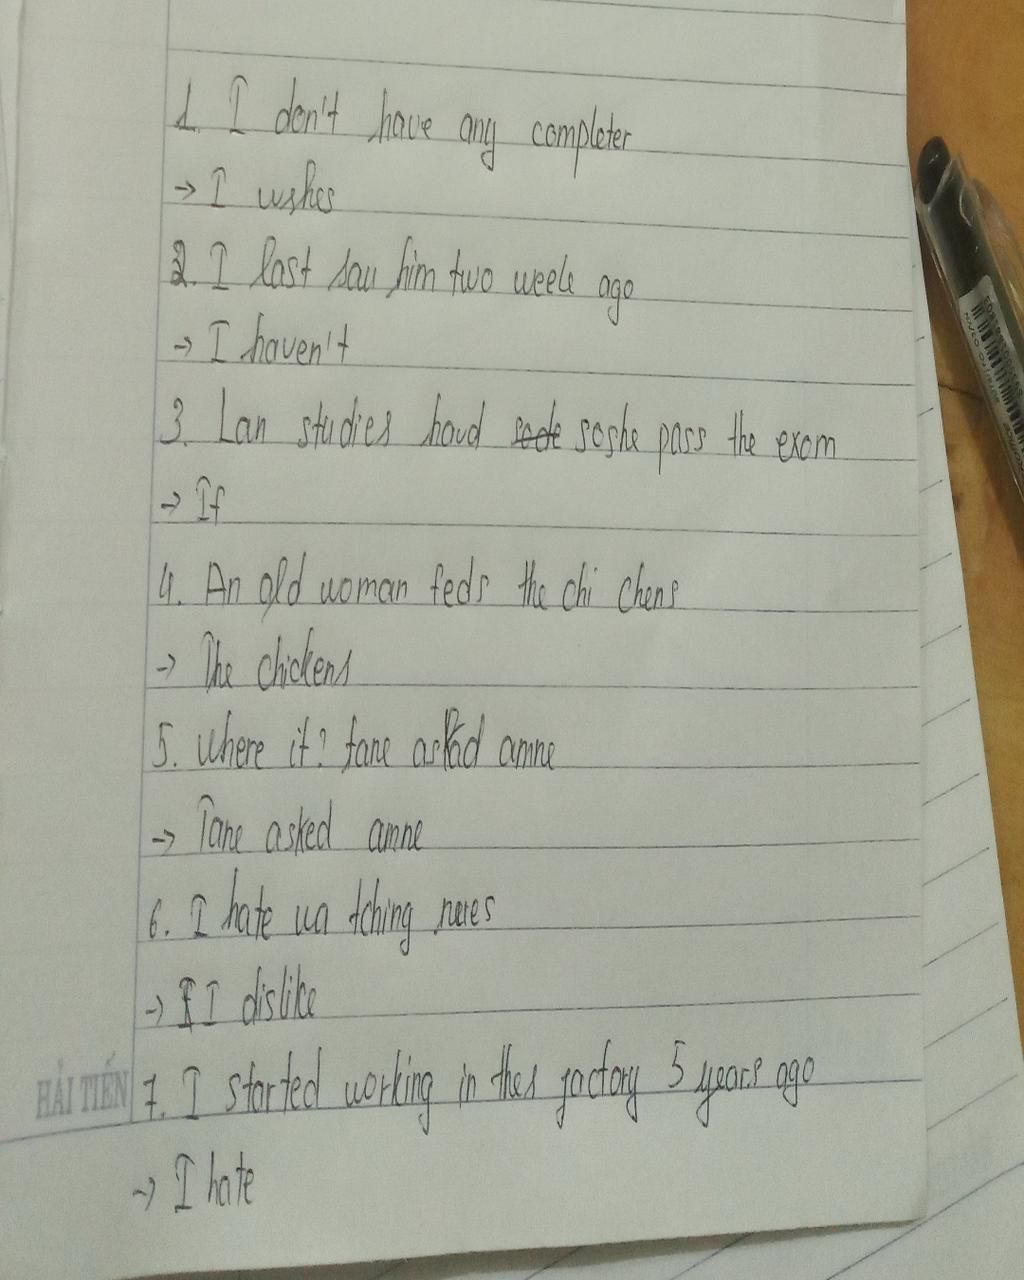 1. I don't have any completer
→ I wshes
2. I last sau him two weele ago
→ I haven't
3. Lan studies houd soshe pass the exam
→ If
4. An old woman feds the chi chens
→ The chickens
5. Where it? fane asked amne
→ Tane asked amne
6. I hate wa tching
→ I dislike
HẢI TIẾN
7. I started working in thes factory 5 years ago
→ I hate